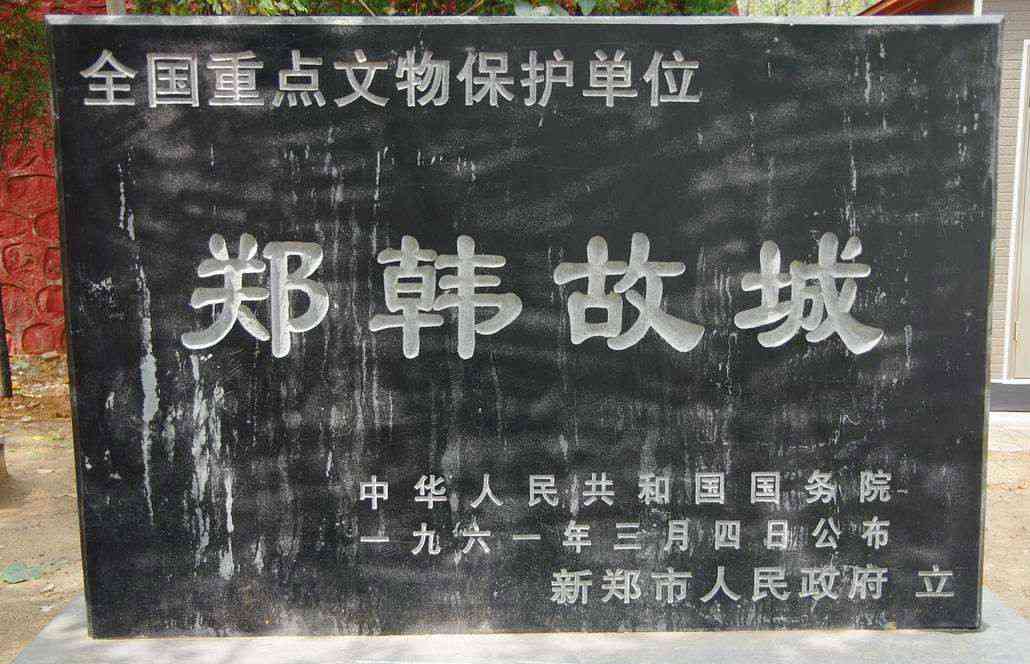 全国重点文物保护单位
郑韩故城
中华人民共和国国务院
一九六一年三月四日公布
新郑市人民政府 立